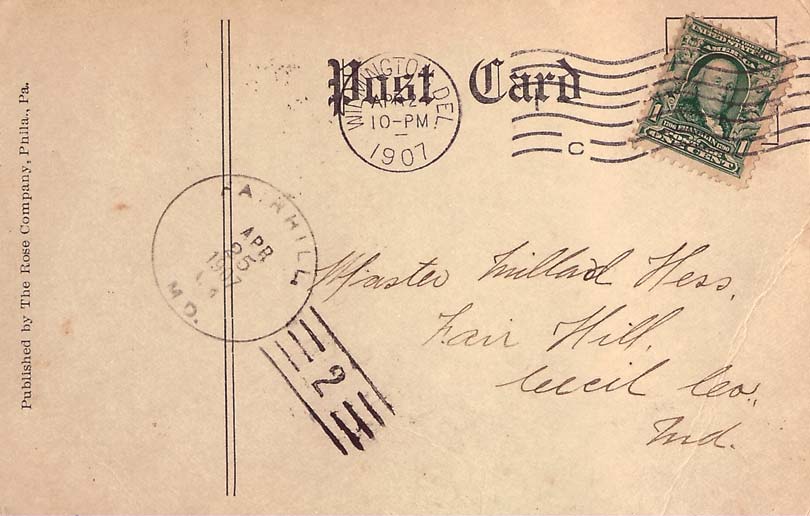 Published by The Rose Company, Phila., Pa.
Post Card
WILMINGTON, DEL.
APR 2
10-PM
1907
C
UNITED STATES OF
AMERICA
1 1
ONE CENT
FAIRHILL
APR
25
1907
MD.
2
Master Millard Hess,
Fair Hill,
Cecil Co.,
Md.